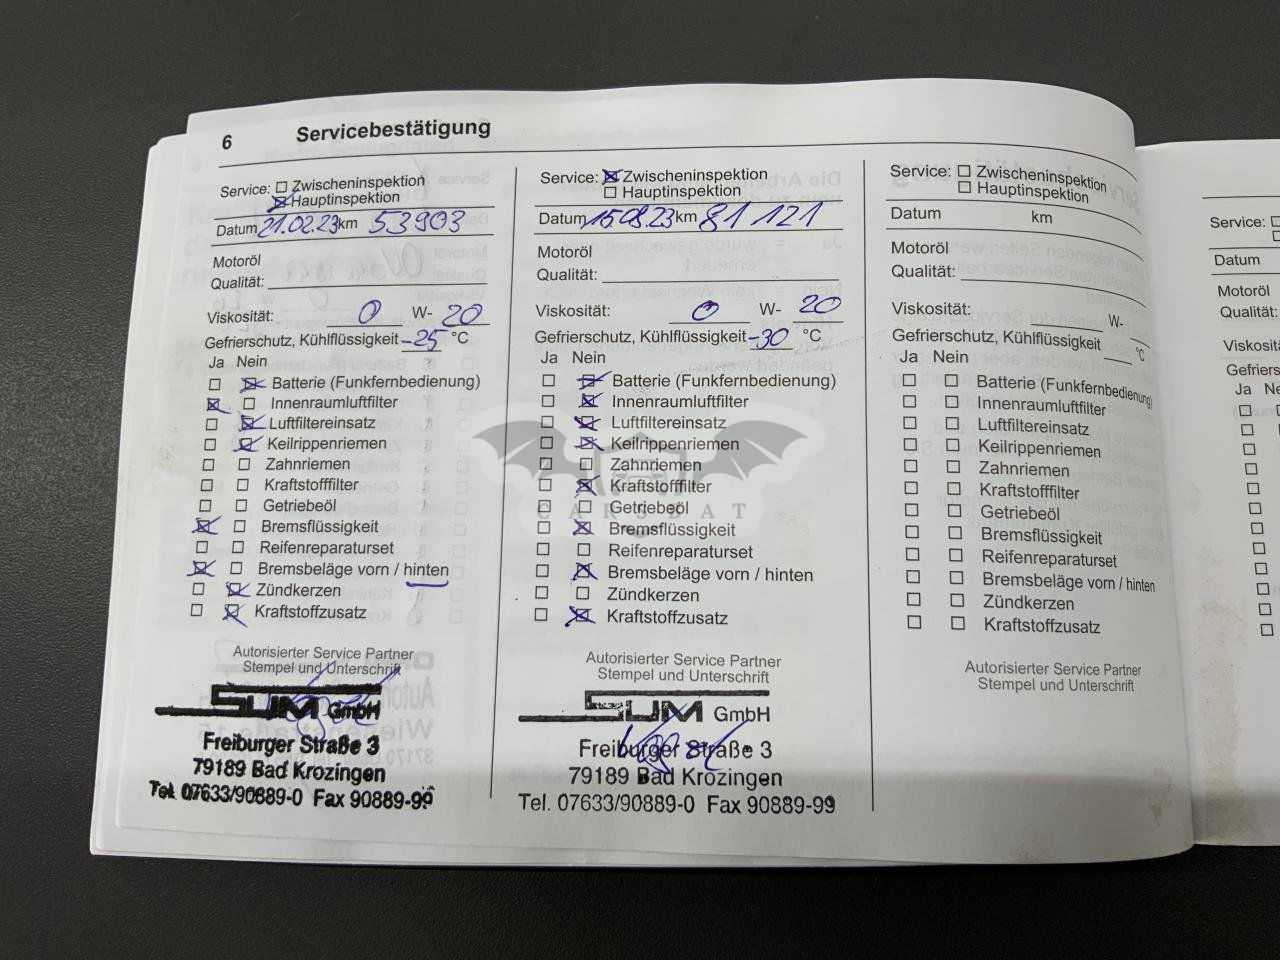 6 Servicebestätigung
Service: Zwischeninspektion
Hauptinspektion
Datum 21.02.23 km 53903
Motoröl
Qualität:
Viskosität: 0 W- 20
Gefrierschutz, Kühlflüssigkeit -25 °C
Ja Nein
Batterie (Funkfernbedienung)
Innenraumluftfilter
Luftfiltereinsatz
Keilrippenriemen
Zahnriemen
Kraftstofffilter
Getriebeöl
Bremsflüssigkeit
Reifenreparaturset
Bremsbeläge vorn / hinten
Zündkerzen
Kraftstoffzusatz
Autorisierter Service Partner
Stempel und Unterschrift
SUM GmbH
Freiburger Straße 3
79189 Bad Krozingen
Tel. 07633/90889-0 Fax 90889-99
Service: Zwischeninspektion
Hauptinspektion
Datum km 81121
Motoröl
Qualität:
Viskosität: 0 W- 20
Gefrierschutz, Kühlflüssigkeit -30 °C
Ja Nein
Batterie (Funkfernbedienung)
Innenraumluftfilter
Luftfiltereinsatz
Keilrippenriemen
Zahnriemen
Kraftstofffilter
Getriebeöl
Bremsflüssigkeit
Reifenreparaturset
Bremsbeläge vorn / hinten
Zündkerzen
Kraftstoffzusatz
Autorisierter Service Partner
Stempel und Unterschrift
SUM GmbH
Freiburger Straße 3
79189 Bad Krozingen
Tel. 07633/90889-0 Fax 90889-99
Service: Zwischeninspektion
Hauptinspektion
Datum km
Motoröl
Qualität:
Viskosität: W-
Gefrierschutz, Kühlflüssigkeit °C
Ja Nein
Batterie (Funkfernbedienung)
Innenraumluftfilter
Luftfiltereinsatz
Keilrippenriemen
Zahnriemen
Kraftstofffilter
Getriebeöl
Bremsflüssigkeit
Reifenreparaturset
Bremsbeläge vorn / hinten
Zündkerzen
Kraftstoffzusatz
Autorisierter Service Partner
Stempel und Unterschrift
Service:
Datum
Motoröl
Qualität:
Ja
CARSBAT